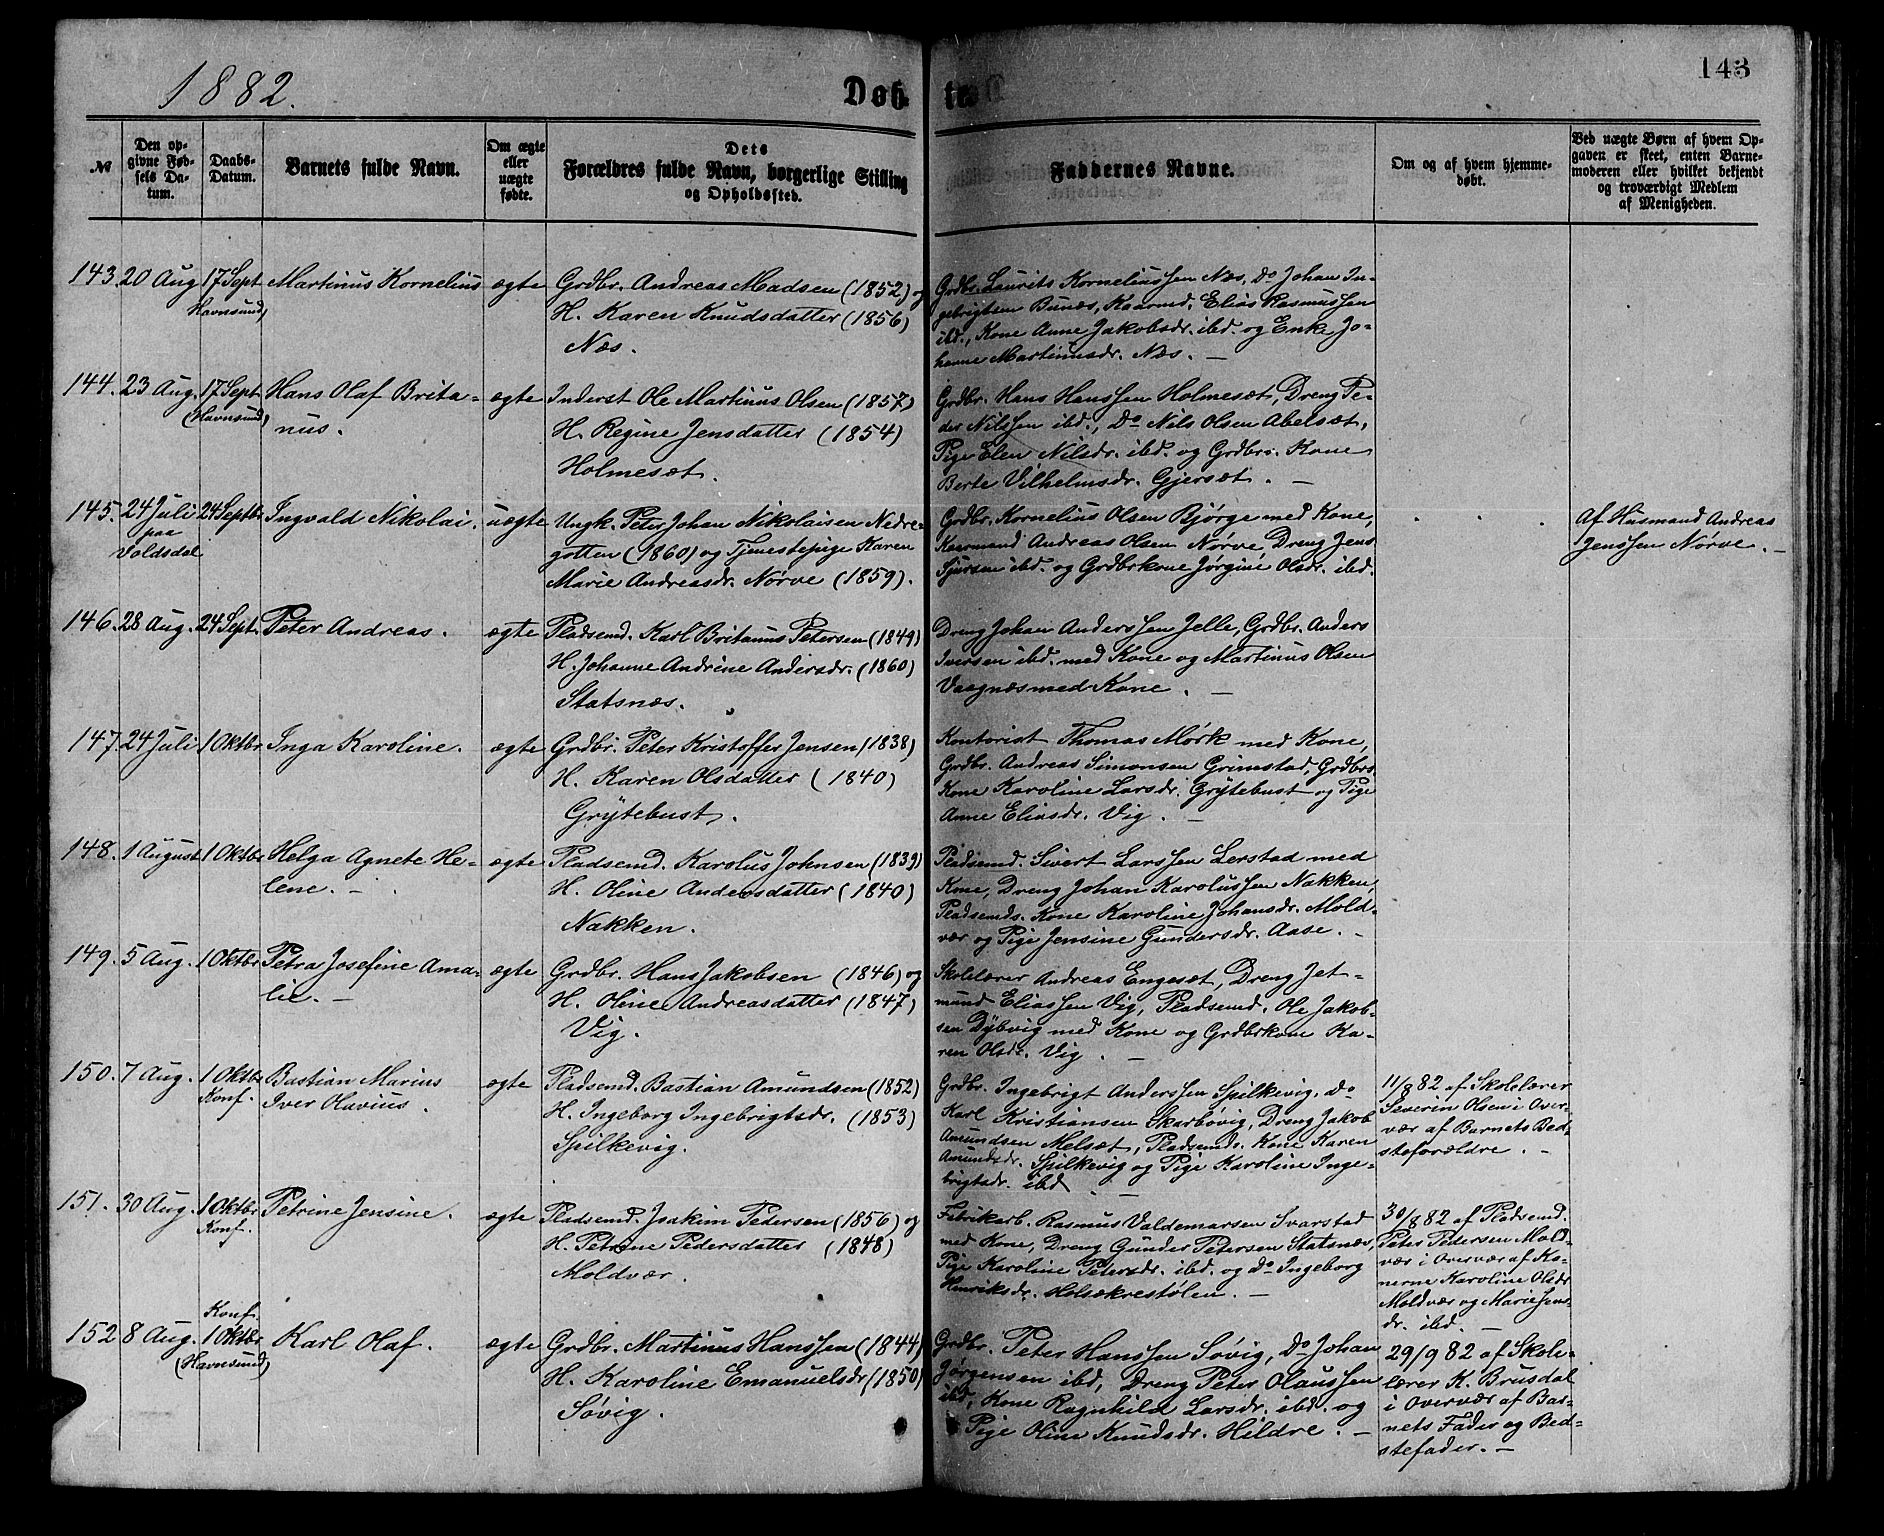 1882.
Døb- te.
143
№
Den opgivne Fødsels Datum.
Daabs-Datum.
Barnets fulde Navn.
Om ægte eller uægte fødte.
Dets Forældres fulde Navn, borgerlige Stilling og Opholdssted.
Faddernes Navne.
Om og af hvem hjemmedøbt.
Ved uægte Børn af hvem Opgaven er skeet, enten Barnemoderen eller hvilket bekjendt og troværdigt Medlem af Menigheden.
143. 20 Aug 17 Sept Martinus Kornelius ægte Grdbr. Andreas Madsen (1852) og
Havnsund)
H. Karen Knudsdatter (1856)
Næs.
Grdbr. Laurits Korneliussen Næs, Do Johan In-
gebrigtsen Bunes, Kaarmd. Elias Rasmussen
ibd., Kone Anne Jakobsdr. ibd. og Enke Jo-
hanne Martinusdr. Næs. –
144. 23 Aug. 17 Sept Hans Olaf Brita- ægte Inderst Ole Martinus Olsen (1857)
(Havnsund)
nus.
H. Regine Jensdatter (1854)
Holmesæt.
Grdbr. Hans Hanssen Holmesæt, Dreng Pe-
der Nilssen ibd., Do Nils Olsen Abelsæt,
Pige Elen Nilsdr. ibd. og Grdbrs. Kone
Berte Vilhelmsdr. Gjersæt. –
145. 24 Juli 24 Septbr Ingvald Nikolai. uægte Ungk. Peter Johan Nikolaisen Nedre-
paa
Voldsdal
gotten (1860) og Tjenestepige Karen
Marie Andreasdr. Nørve (1859).
Grdbr. Kornelius Olsen Bjørge med Kone,
Kaarmand Andreas Olsen Nørve, Dreng Jens
Sjursen ibd. og Grdbrkone Jørgine Olsdr. ibd.
Af Husmand Andreas
Jenssen Nørve. –
146. 28 Aug. 24 Sept. Peter Andreas. ægte Pladsemd. Karl Britanus Petersen (1849)
H. Johanne Andrine Andersdr. (1860)
Statsnæs.
Dreng Johan Anderssen Jelle, Grdbr. Anders
Iversen ibd. med Kone og Martinus Olsen
Vaagnæs med Kone. –
147. 24 Juli 1 Oktbr Inga Karoline. ægte Grdbr. Peter Kristoffer Jensen (1838)
H. Karen Olsdatter (1840)
Grytebust.
Kontorist Thomas Mørk med Kone,
Grdbr. Andreas Simonsen Grimstad, Grdbrs.
Kone Karoline Larsdr. Grytebust og Pige
Anne Eliasdr. Vig. –
148. 1 August 1 Oktbr Helga Agnete He- ægte Pladsemd. Karolus Johnsen (1839)
lene. –
H. Oline Andersdatter (1840)
Nakken.
Pladsemd. Sivert Larssen Lerstad med
Kone, Dreng Johan Karolussen Nakken,
Pladsemds. Kone Karoline Johansdr. Mold-
vær og Pige Jensine Gundersdr. Aase. –
149. 5 Aug. 1 Oktbr Petra Josefine Ama- ægte Grdbr. Hans Jakobsen (1846) og
lie. –
H. Oline Andreasdatter (1847)
Vig.
Skolelærer Andreas Engeset, Dreng Jet-
mund Eliassen Vig, Pladsemd. Ole Jakob-
sen Dybvig med Kone og Grdbrkone Ka-
ren Olsdr. Vig. –
150. 7 Aug. 1 Oktbr Bastian Marius ægte Pladsemd. Bastian Amundsen (1852)
Konf.
Iver Olavius.
H. Ingeborg Ingebrigtsdr. (1853)
Spilkevig.
Grdbr. Ingebrigt Anderssen Spilkevig, Do
Karl Kristiansen Skarbøvig, Dreng Jakob
Amundsen Melsæt, Pladsemds. Kone Karen
Amundsdr. Spilkevig og Pige Karoline Inge-
brigtsdr. ibd. –
11/8 82 af Skolelærer
Severin Olsen i Over-
vær af Barnets Bed-
steforældre. –
151. 30 Aug. 1 Oktbr Petrine Jensine. ægte Pladsemd. Joakim Pedersen (1856) og
Konf.
H. Petrine Pedersdatter (1848)
Moldvær.
Fabrikarb. Rasmus Valdemarsen Svarstad
med Kone, Dreng Gunder Petersen Statsnæs,
Pige Karoline Petersdr. ibd. og Do Ingeborg
Henriksdr. Holsækrestølen. –
30/8 82 af Pladsemd.
Peter Pedersen Mold-
vær i Overvær af Ko-
nerne Karoline Olsdr
Moldvær og Marie Jens-
dr. ibd. –
Konf.
152 8 Aug. 1 Oktbr Karl Olaf. ægte Grdbr. Martinus Hanssen (1844)
(Havnsund)
H. Karoline Emanuelsdr (1850)
Søvig.
Grdbr. Peter Hanssen Søvig, Do Johan
Jørgensen ibd, Dreng Peter Olaussen
ibd, Kone Ragnhild Larsdr. ibd. og
Pige Oline Knudsdr. Hildre. –
29/9 82 af Skole-
lærer K. Brusdal
i Overvær af Bar-
nets Fader og Bed-
stefader. –